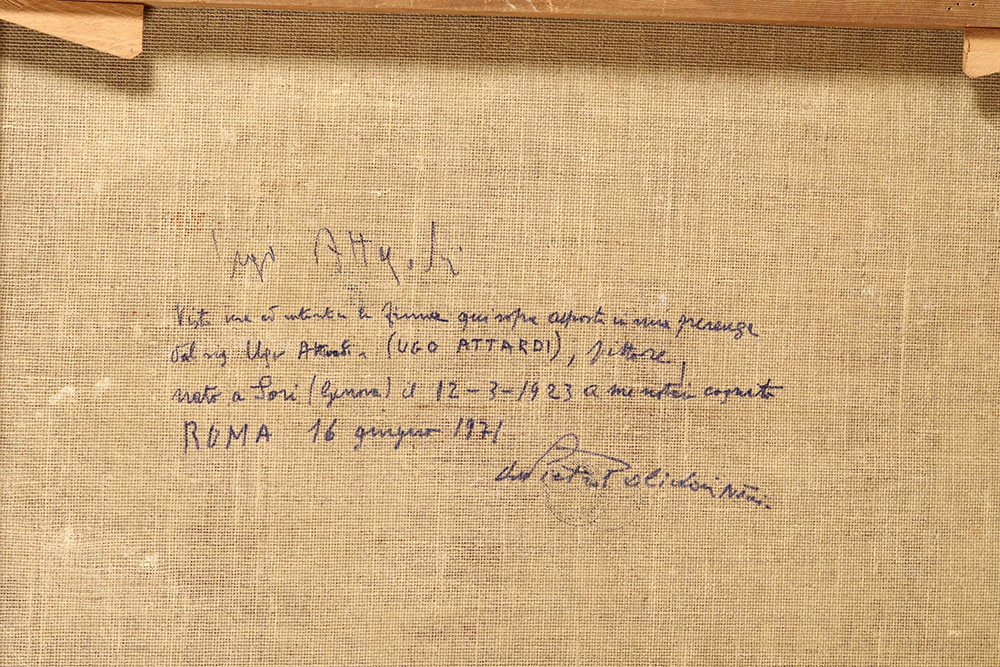 Ugo Attardi
Vista vera ed autentica la firma qui sopra apposta in mia presenza
dal sig Ugo Attardi. (UGO ATTARDI), pittore,
nato a Sori (Genova) il 12-3-1923 a me notaio
ROMA 16 giugno 1971
Polidori